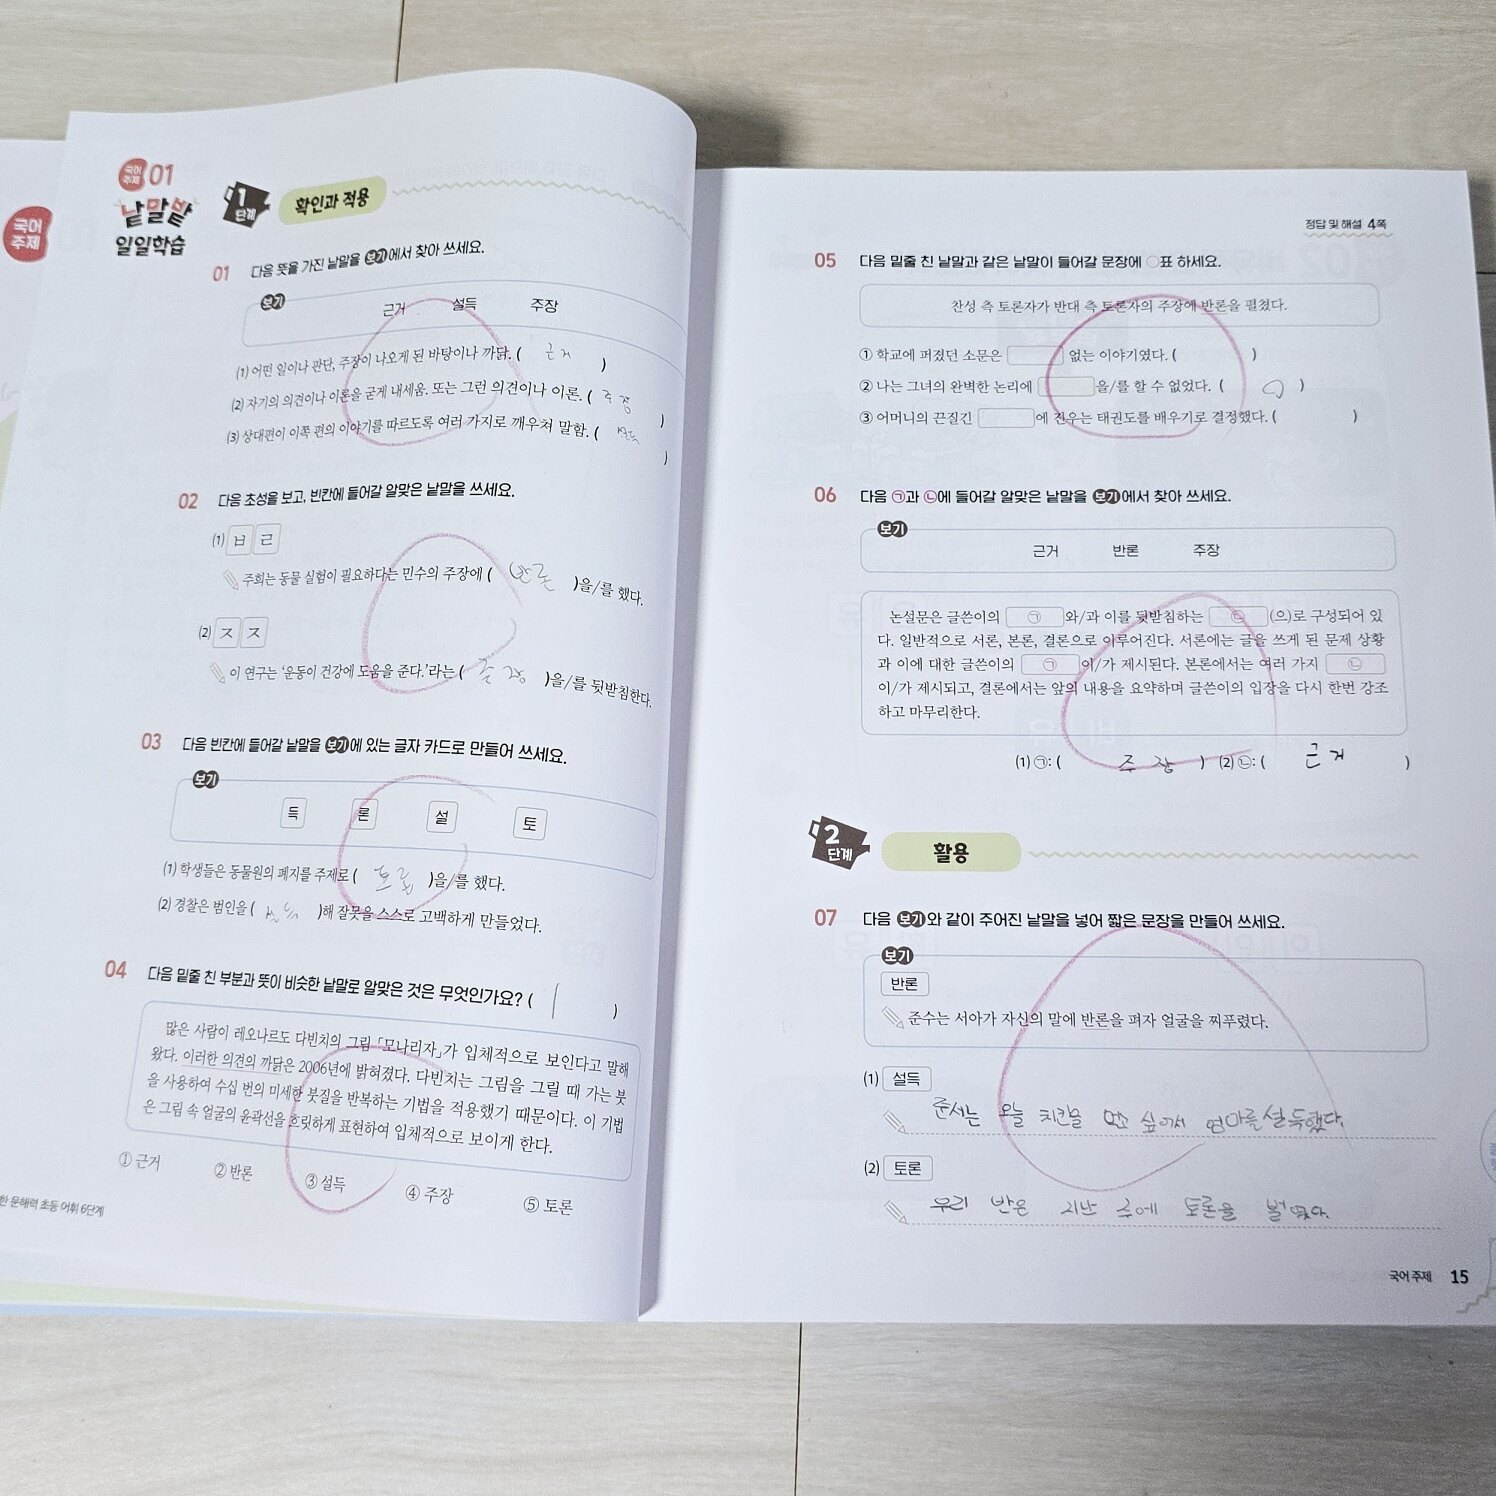 국어 주제
국어 주제 01
낱말밭
일일학습
1단계 확인과 적용
01 다음 뜻을 가진 낱말을 보기에서 찾아 쓰세요.
보기
근거 설득 주장
(1) 어떤 일이나 판단, 주장이 나오게 된 바탕이나 까닭. ( 근거 )
(2) 자기의 의견이나 이론을 굳게 내세움. 또는 그런 의견이나 이론. ( 주장 )
(3) 상대편이 이쪽 편의 이야기를 따르도록 여러 가지로 깨우쳐 말함. ( 설득 )
02 다음 초성을 보고, 빈칸에 들어갈 알맞은 낱말을 쓰세요.
(1) ㅂ ㄹ
주희는 동물 실험이 필요하다는 민수의 주장에 ( 반론 )을/를 했다.
(2) ㅈ ㅈ
이 연구는 '운동이 건강에 도움을 준다.'라는 ( 주장 )을/를 뒷받침한다.
03 다음 빈칸에 들어갈 낱말을 보기에 있는 글자 카드로 만들어 쓰세요.
보기
득 론 설 토
(1) 학생들은 동물원의 폐지를 주제로 ( 토론 )을/를 했다.
(2) 경찰은 범인을 ( 설득 )해 잘못을 스스로 고백하게 만들었다.
04 다음 밑줄 친 부분과 뜻이 비슷한 낱말로 알맞은 것은 무엇인가요? ( 1 )
많은 사람이 레오나르도 다빈치의 그림 「모나리자」가 입체적으로 보인다고 말해
왔다. 이러한 의견의 까닭은 2006년에 밝혀졌다. 다빈치는 그림을 그릴 때 가는 붓
을 사용하여 수십 번의 미세한 붓질을 반복하는 기법을 적용했기 때문이다. 이 기법
은 그림 속 얼굴의 윤곽선을 흐릿하게 표현하여 입체적으로 보이게 한다.
① 근거 ② 반론 ③ 설득 ④ 주장 ⑤ 토론
한 문해력 초등 어휘 6단계
정답 및 해설 4쪽
05 다음 밑줄 친 낱말과 같은 낱말이 들어갈 문장에 ○표 하세요.
찬성 측 토론자가 반대 측 토론자의 주장에 반론을 펼쳤다.
① 학교에 퍼졌던 소문은 없는 이야기였다. ( )
② 나는 그녀의 완벽한 논리에 을/를 할 수 없었다. ( ○ )
③ 어머니의 끈질긴 에 진우는 태권도를 배우기로 결정했다. ( )
06 다음 ㉠과 ㉡에 들어갈 알맞은 낱말을 보기에서 찾아 쓰세요.
보기
근거 반론 주장
논설문은 글쓴이의 ㉠ 와/과 이를 뒷받침하는 ㉡ (으)로 구성되어 있
다. 일반적으로 서론, 본론, 결론으로 이루어진다. 서론에는 글을 쓰게 된 문제 상황
과 이에 대한 글쓴이의 ㉠ 이/가 제시된다. 본론에서는 여러 가지 ㉡
이/가 제시되고, 결론에서는 앞의 내용을 요약하며 글쓴이의 입장을 다시 한번 강조
하고 마무리한다.
(1) ㉠: ( 주장 ) (2) ㉡: ( 근거 )
2단계 활용
07 다음 보기와 같이 주어진 낱말을 넣어 짧은 문장을 만들어 쓰세요.
보기
반론
준수는 서아가 자신의 말에 반론을 펴자 얼굴을 찌푸렸다.
(1) 설득
준서는 오늘 치킨을 먹고 싶어서 엄마를 설득했다.
(2) 토론
우리 반은 지난 주에 토론을 벌였다.
국어 주제 15